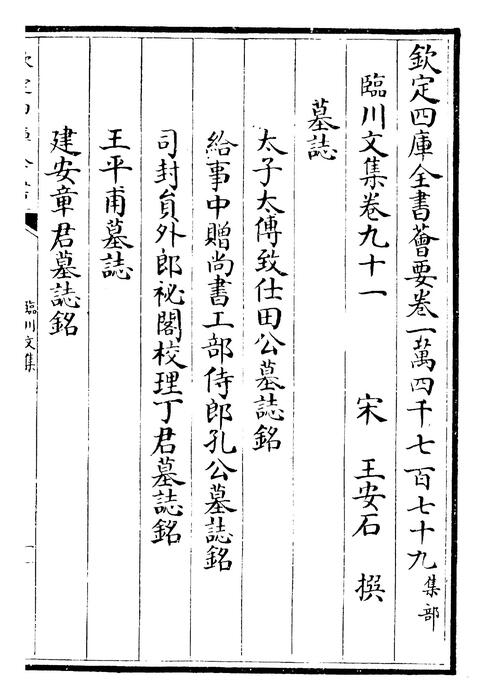 欽定四庫全書薈要卷一萬四千七百七十九集部
臨川文集卷九十一 宋 王安石 撰
墓誌
太子太傅致仕田公墓誌銘
給事中贈尚書工部侍郎孔公墓誌銘
司封員外郎祕閣校理丁君墓誌銘
王平甫墓誌
建安章君墓誌銘
臨川文集